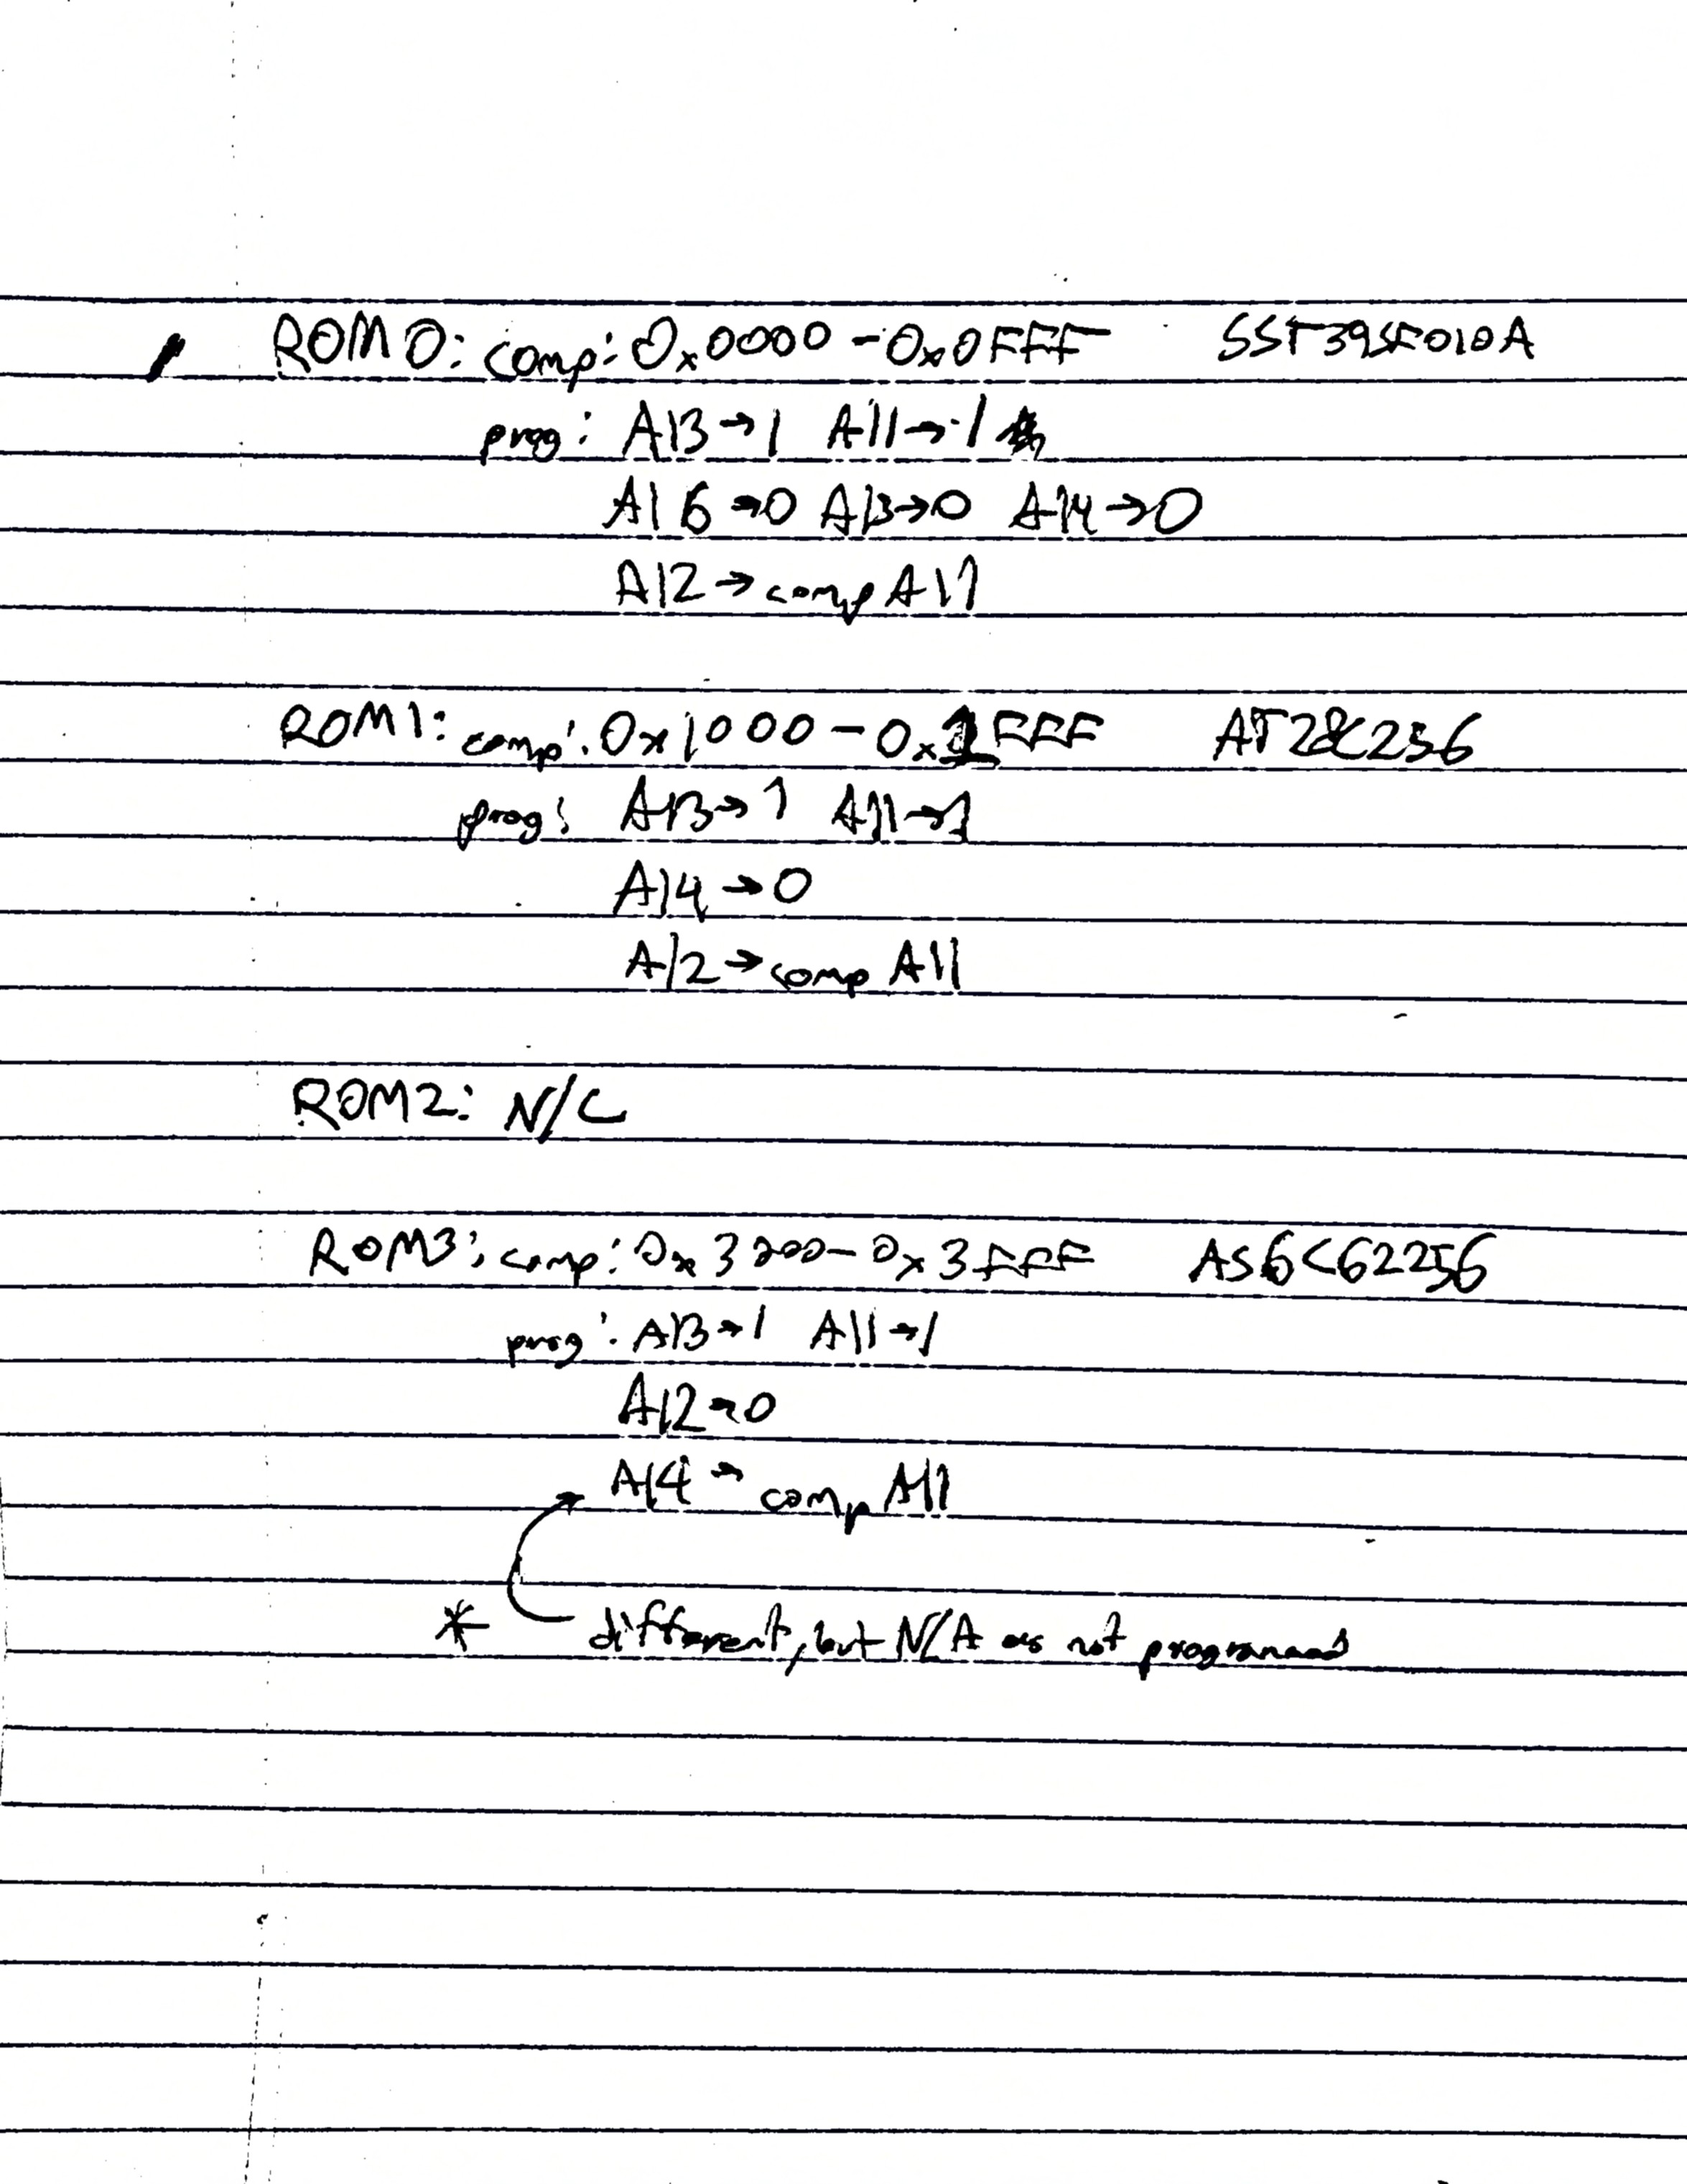 ROM0: comp: 0x0000 - 0x0FFF SST39SF010A
prog: A13→1 A11→1
A16→0 A13→0 A14→0
A12→comp A11
ROM1: comp: 0x1000 - 0x1FFF AT28C256
prog: A13→1 A11→1
A14→0
A12→comp A11
ROM2: N/C
ROM3: comp: 0x3000 - 0x3FFF AS6C62256
prog: A13→1 A11→1
A12→0
A14→comp A11
* different, but N/A as not programmed